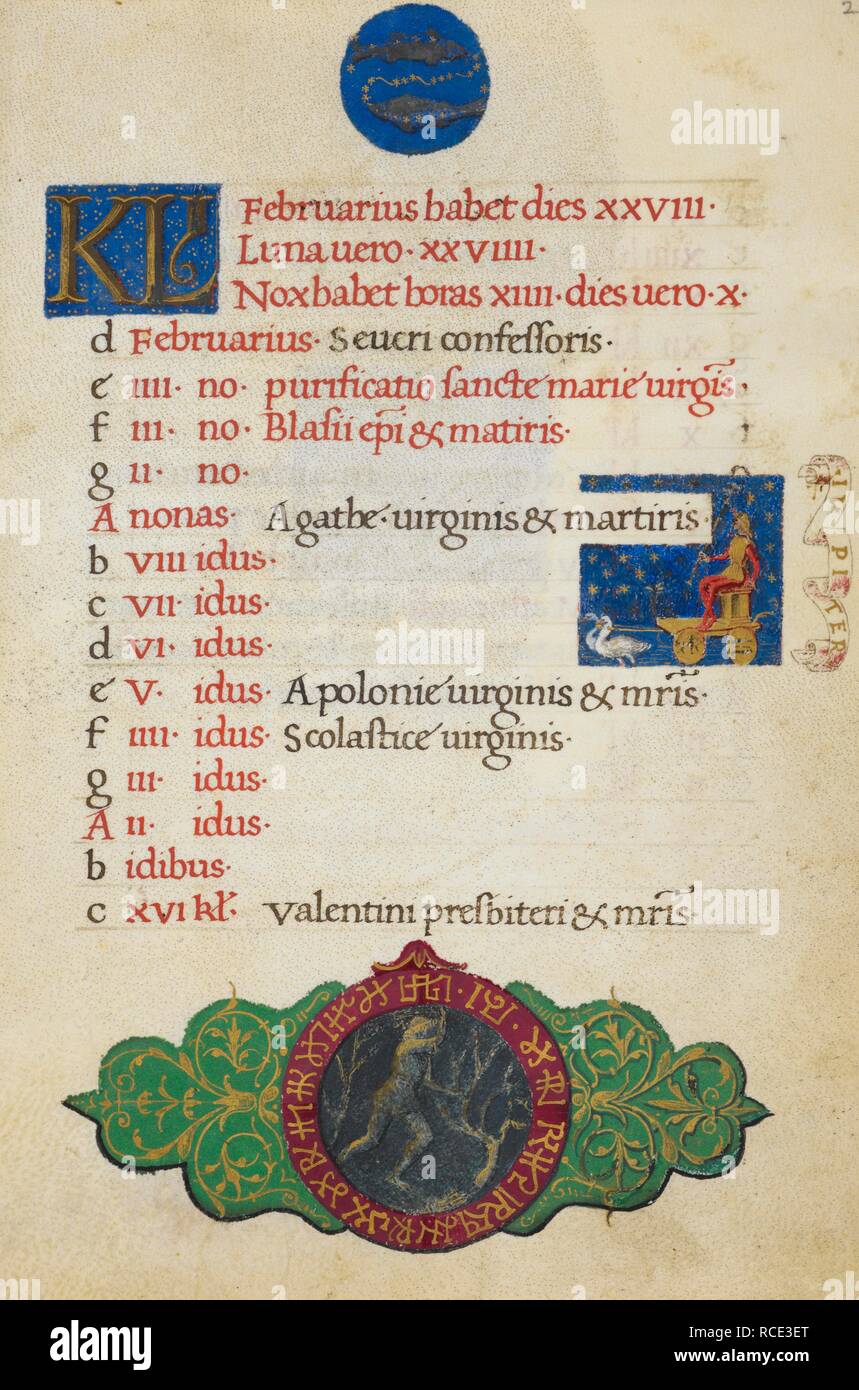 2
KL Februarius habet dies xxviii·
Luna uero· xxviiii·
Nox habet horas xiiii· dies uero· x·
d Februarius· Seueri confessoris·
e iiii· no· purificatio sancte marie uirgīs·
f iii· no· Blasii epī & matiris·
g ii· no·
A nonas· Agathe· uirginis & martiris·
b viii idus·
c vii· idus·
d vi· idus·
e v· idus· Apolonie uirginis & mrīs·
f iiii· idus· Scolastice uirginis·
g iii· idus·
A ii· idus·
b idibus·
c xvi kl· Valentini presbiteri & mrīs·
IVPITER
alamy
a
alamy
Image ID: RCE3ET
www.alamy.com